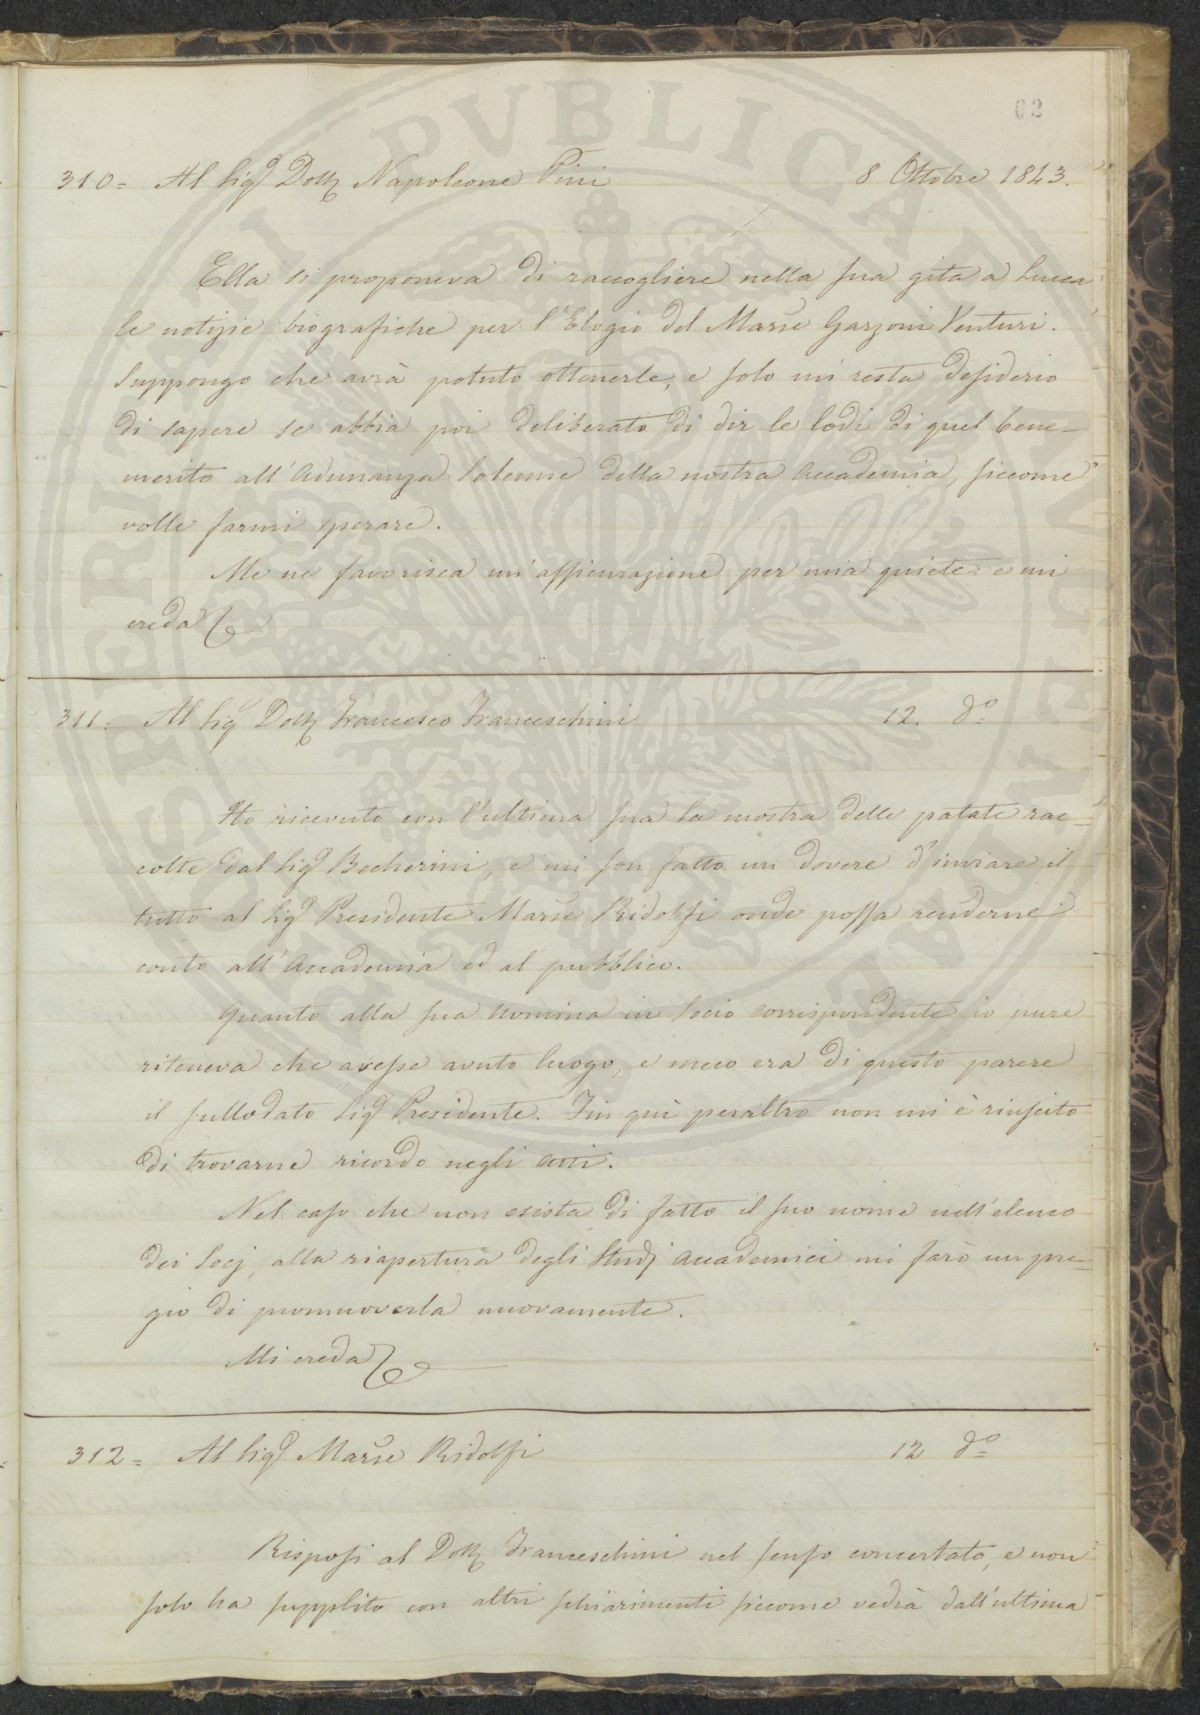 62
310= Al Sigr Dottr Napoleone Pini 8 Ottobre 1843.
Ella si proponeva di raccogliere nella sua gita a Lucca
le notizie biografiche per l'Elogio del Marse Garzoni Venturi.
Suppongo che avrà potuto ottenerle, e solo mi resta desiderio
di sapere se abbia poi deliberato di dir le lodi di quel bene-
merito all'Adunanza Solenne della nostra Accademia, siccome
volle farmi sperare.
Me ne favorisca un'assicurazione per mia quiete e mi
creda
311= Al Sigr Dottr Francesco Franceschini 12. do
Ho ricevuto con l'ultima sua la mostra delle patate rac-
colte dal Sigr Becherini, e mi son fatto un dovere d'inviare il
tutto al Sigr Presidente Marse Ridolfi onde possa renderne
conto all'Accademia ed al pubblico.
Quanto alla sua nomina in Socio corrispondente io pure
riteneva che avesse avuto luogo, e meco era di questo parere
il sullodato Sigr Presidente. Fin quì peraltro non mi è riuscito
di trovarne ricordo negli Atti.
Nel caso che non esista di fatto il suo nome nell'elenco
dei Socj, alla riapertura degli Studj Accademici mi farò un pre-
gio di promuoverla nuovamente.
Mi creda
312= Al Sigr Marse Ridolfi 12 do
Risposi al Dottr Franceschini nel senso concertato, e non
solo ha supplito con altri schiarimenti siccome vedrà dall'ultima
PVBLICA